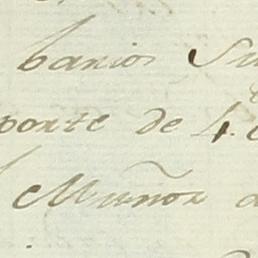 barios Su
porte de 4.
Muñoz d